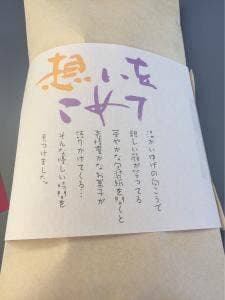 想いを
こめて
湯かいほげの向こうで
親しい顔が笑ってる
華やかな包装紙を開くと
表情豊かなお菓子が
語りかけてくる…
そんな優しい時間を
みつけました。